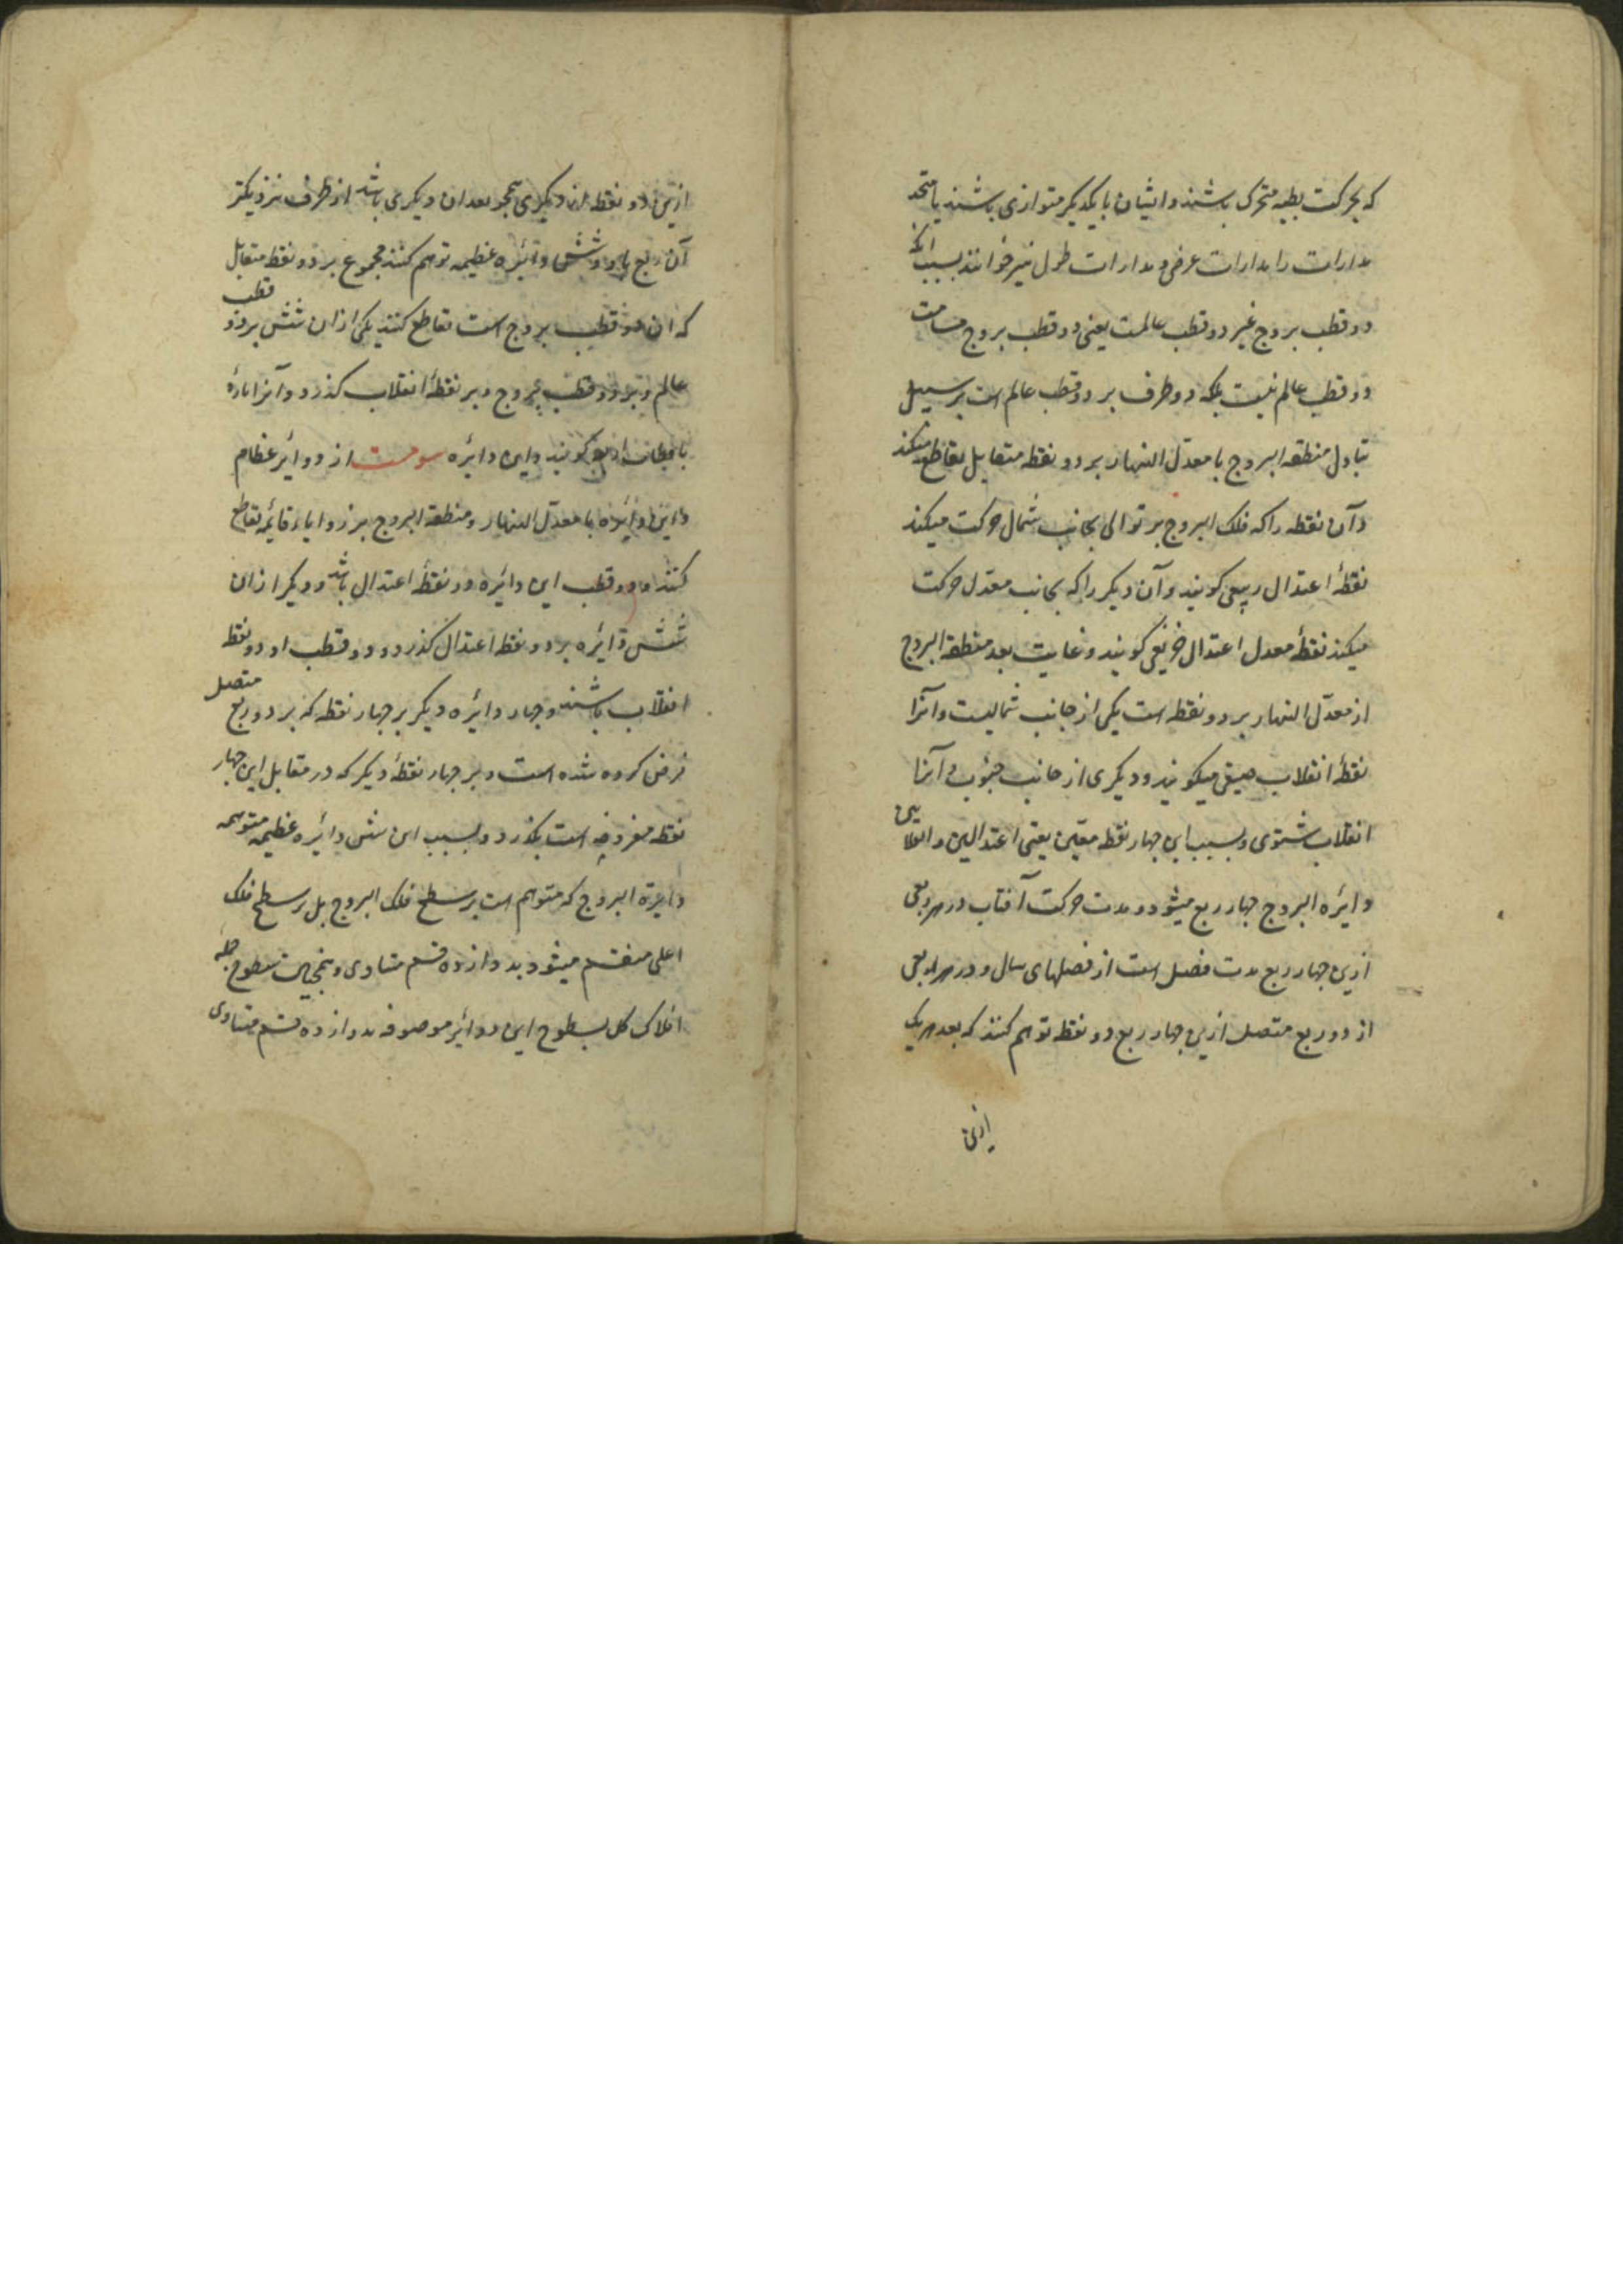 که بحرکت بطیه متحرک باشند و ایشان با یکدیگر متوازی باشند یا متحد
مدارات را مدارات عرض و مدارات طول نیز خوانند بسبب آنکه
دو قطب بروج غیر دو قطب عالمست یعنی دو قطب بروج مسامت
دو قطب عالم نیست بلکه دو طرف بر دو قطب عالم است بر سبیل
تبادل منطقه البروج با معدل النهار بر دو نقطه متقابل تقاطع میکند
و آن نقطه را که فلک البروج بر توالی بجانب شمال حرکت میکند
نقطهٔ اعتدال ربیعی کویند و آن دیکر را که بجانب معدل حرکت
میکند نقطهٔ معدل اعتدال خریفی کویند و غایت بعد منطقة البروج
از معدل النهار بر دو نقطه است یکی از جانب شمالیست و آنرا
نقطهٔ انقلاب صیفی میکویند و دیکری از جانب جنوب و آنرا
انقلاب شتوی و بسبب این چهار نقطه معین یعنی اعتدالین و انقلابین
دایٔره البروج چهار ربع میشود و مدت حرکت آفتاب در هر ربعی
ازین چهار ربع مدت فصل است از فصلهای سال و در هر ربعی
از دو ربع متصل ازین چهار ربع دو نقطه توهم کنند که بعد هر یک
ازین
ازین دو نقطه از دیکری همچو بعد ان دیکری باشد از طرف نزدیکتر
آن ربع پس شش دایٔره عظیمه توهم کنند مجموع بر دو نقطه متقابل
که ان دو قطب بروج است تقاطع کنند یکی ازان شش بر دو قطب
عالم و بر دو قطب بروج و بر نقطهٔ انقلاب کذرد و آنرا مارهٔ
باقطاب اربعه کویند و این دایٔره سومست از دوایٔر عظام
و این دایٔره با معدل النهار و منطقه البروج بر زوایاء قایٔمه تقاطع
کنند و دو قطب این دایٔره دو نقطهٔ اعتدال باشد و دیکر ازان
شش دایٔره بر دو نقطه اعتدال کذرد و دو قطب او دو نقطه
انقلاب باشند و چهار دایٔره دیکر بر چهار نقطه که بر دو ربع متصل
فرض کرده شده است و بر چهار نقطهٔ دیکر که در مقابل این چهار
نقطه مفروضه است بکذرد و بسبب این شش دایٔره عظیمه متوهمه
دایرة البروج که متوهم است بر سطح فلک البروج بل بر سطح فلک
اعلی منقسم میشود بدوازده قسم متساوی و همچنین سطوح جمله
افلاک کل بسطوح این دوایٔر موصوفه بدوازده قسم متساوی